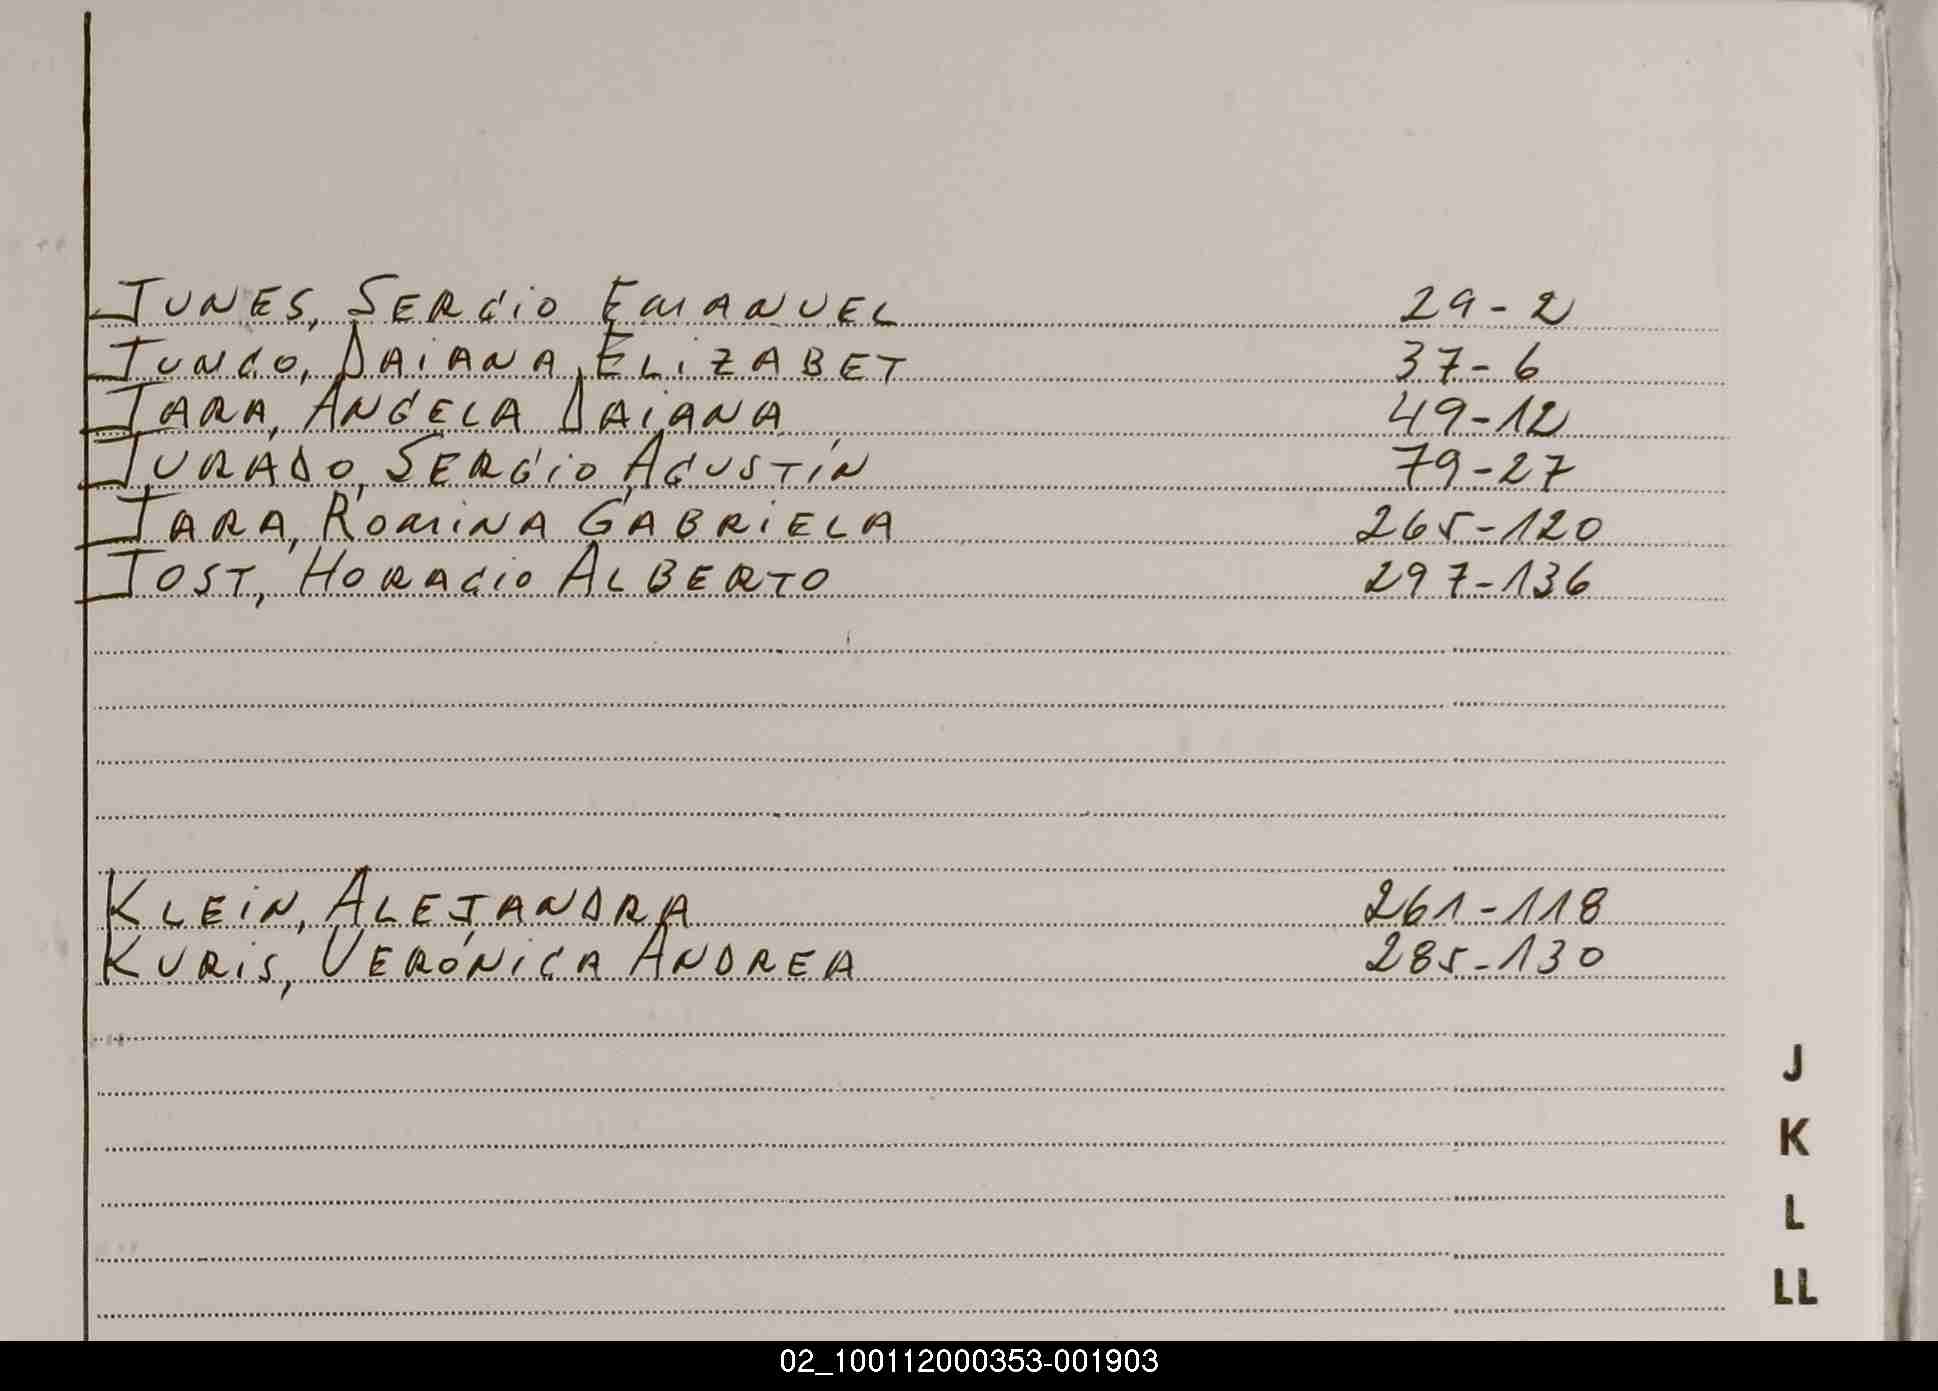 JUNES, SERGIO EMANUEL 29-2
JUNCO, DAIANA ELIZABET 37-6
JARA, ANGELA DAIANA 49-12
JURADO, SERGIO AGUSTÍN 79-27
JARA, ROMINA GABRIELA 265-120
JOST, HORACIO ALBERTO 297-136
KLEIN, ALEJANDRA 261-118
KURIS, VERÓNICA ANDREA 285-130
J
K
L
LL
02_100112000353-001903